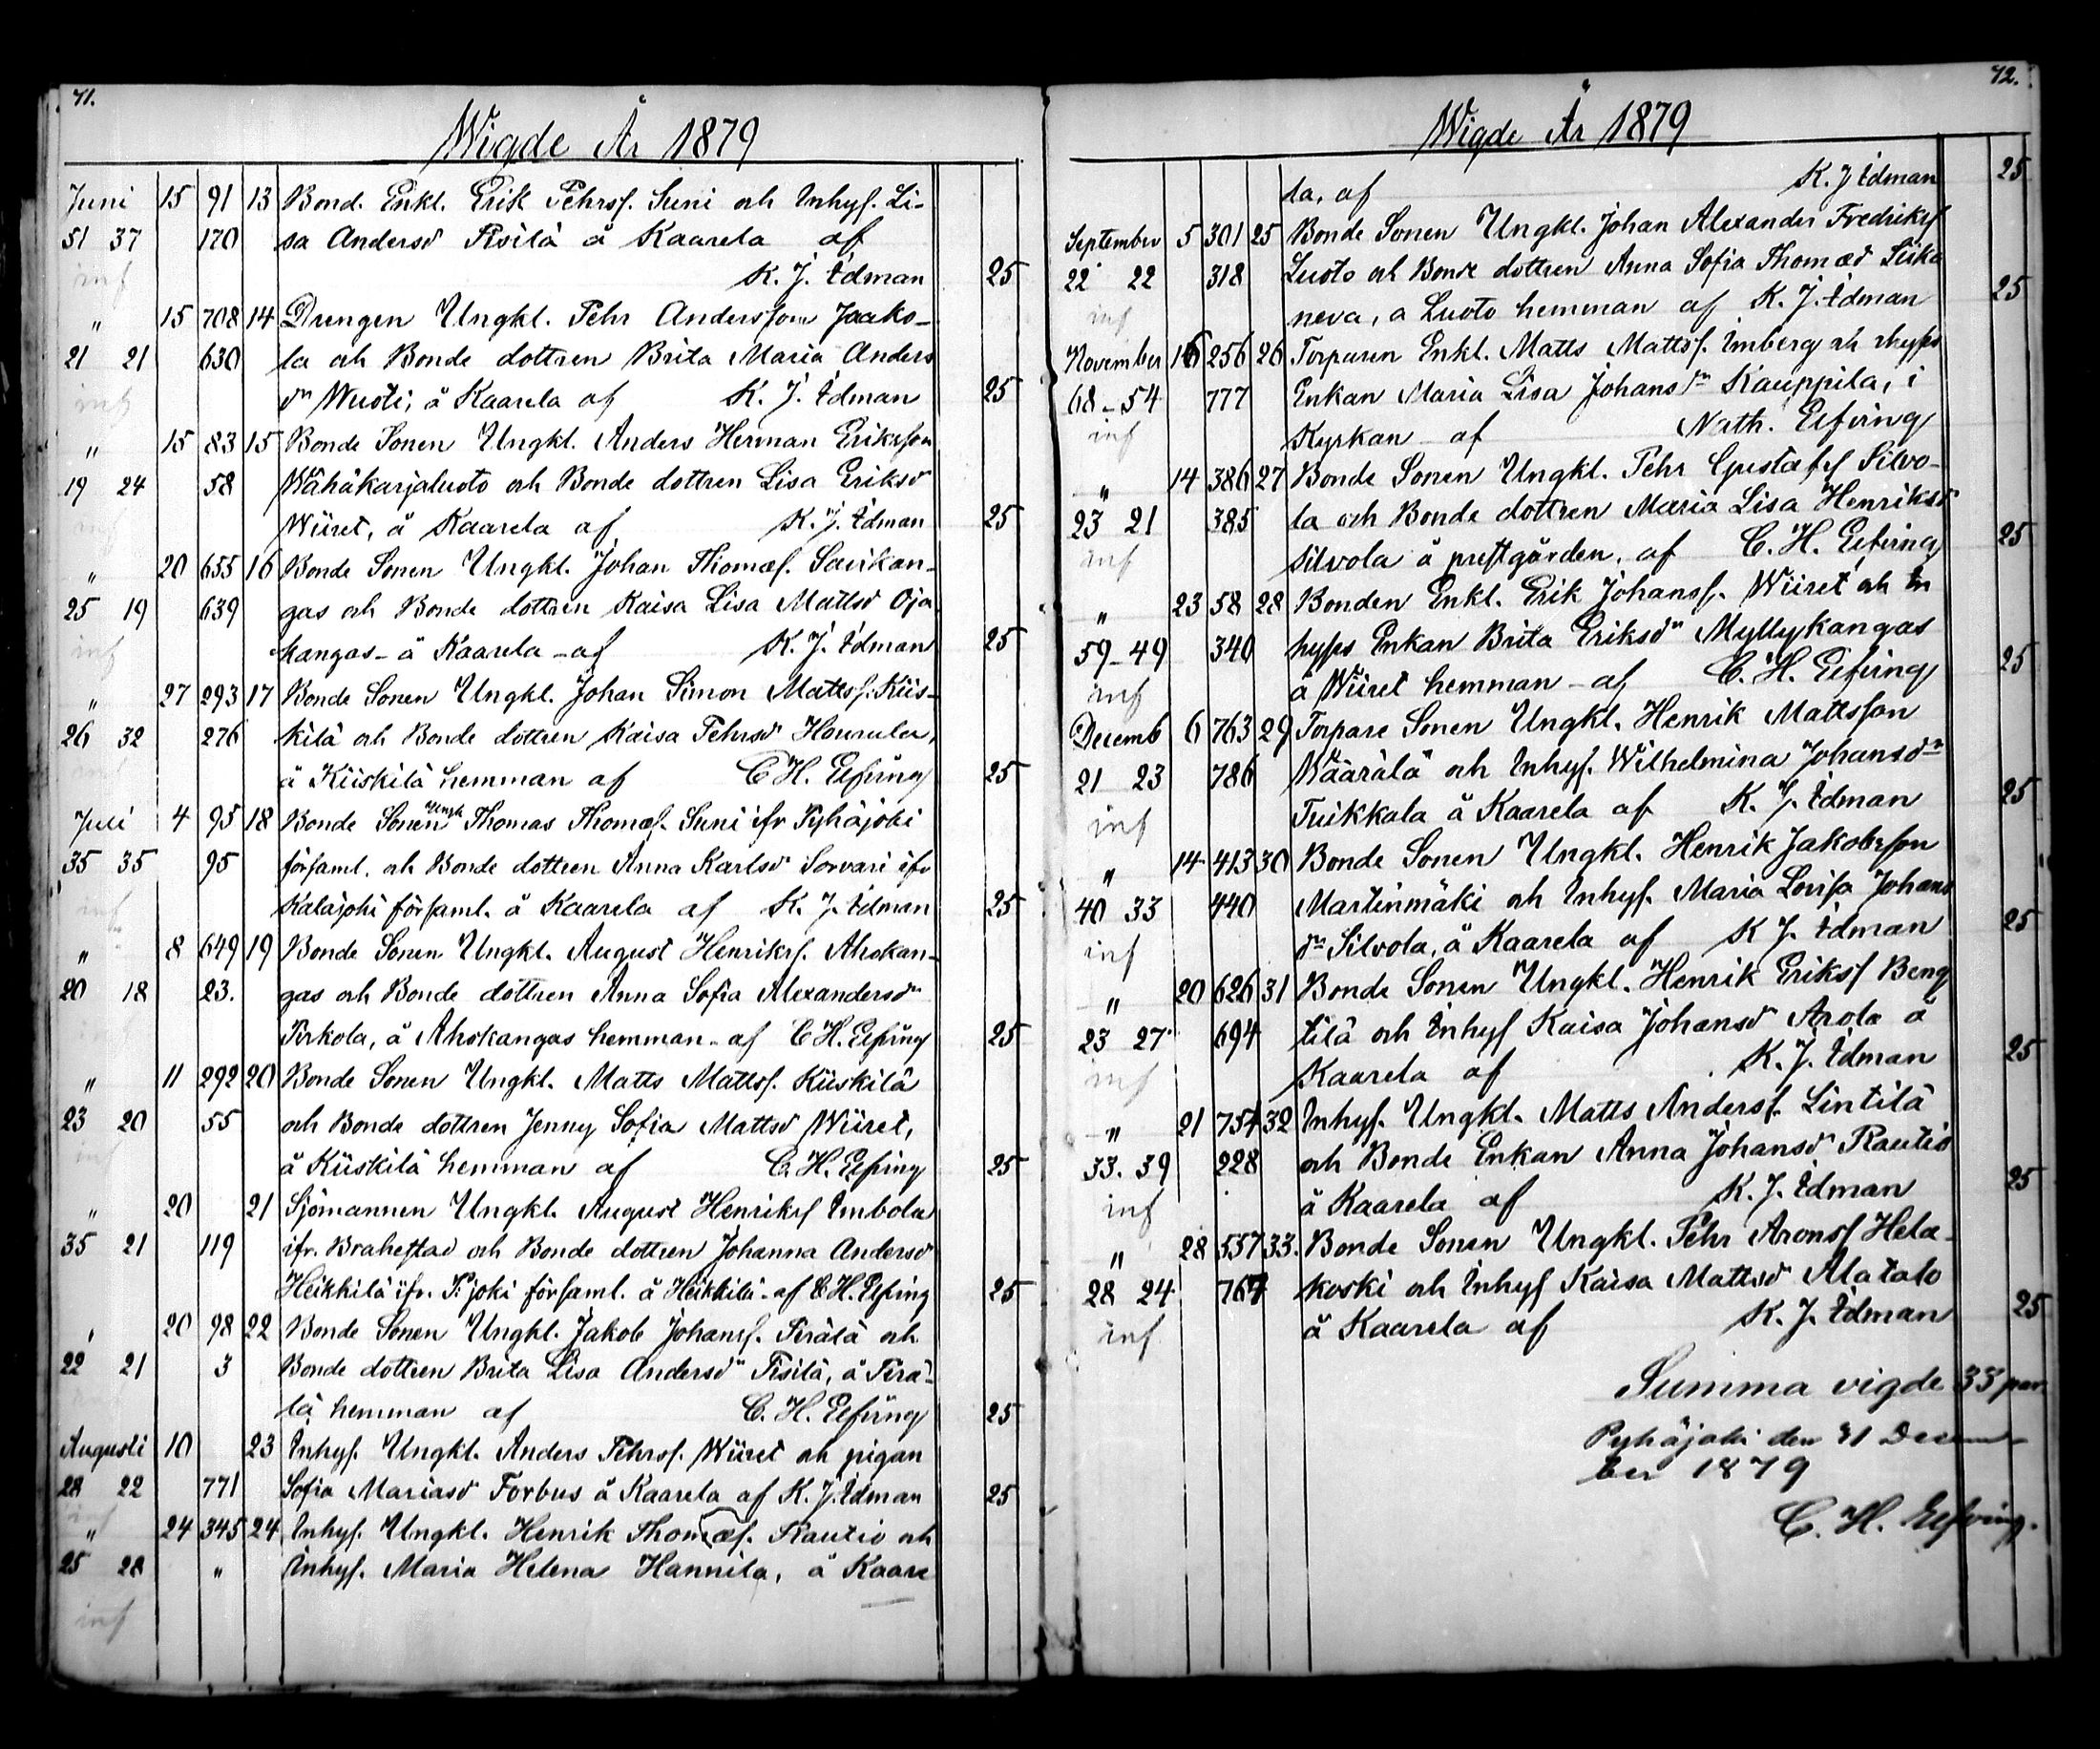 71.
Wigde År 1879
Juni 15 91 13 Bond. Enkl. Erik Pehrsf. Suni och Inhyf. Li-
51 37 170 sa Andersd Pisilä å Kaarela af
inf K. J. Idman 25
" 15 708 14 Drengen Ungkl. Pehr Andersson Jaako-
21 21 630 la och Bonde dottren Brita Maria Anders
inf dr Wuoti, å Kaarela af K. J. Idman 25
" 15 83 15 Bonde Sonen Ungkl. Anders Herman Eriksson
19 24 58 Wähäkarjaluoto och Bonde dottren Lisa Eriksd
inf Wiiret, å Kaarela af K. J. Idman 25
" 20 655 16 Bonde Sonen Ungkl. Johan Thomæf. Savikan-
25 19 639 gas och Bonde dottren Kaisa Lisa Mattsd Oja
inf kangas - å Kaarela - af K. J. Idman 25
" 27 293 17 Bonde Sonen Ungkl. Johan Simon Mattsf. Kiis-
26 32 276 kilä och Bonde dottren Kaisa Pehrsd Hourula,
inf å Kiiskilä hemman af C H. Elfving 25
Juli 4 95 18 Bonde Sonen Ungk Thomas Thomæf. Suni ifr Pyhäjoki
35 35 95 församl. och Bonde dottren Anna Karlsd Sorvari ifr
inf Kalajoki församl. å Kaarela af K. J. Idman 25
" 8 649 19 Bonde Sonen Ungkl. August Henriksf. Ahokan-
20 18 23. gas och Bonde dottren Anna Sofia Alexandersdr
Pirkola, å Ahokangas hemman - af C H. Elfving 25
" 11 292 20 Bonde Sonen Ungkl. Matts Mattsf. Kiiskilä
23 20 55 och Bonde dottren Jenny Sofia Mattsd Wiiret,
inf å Kiiskilä hemman af C. H. Elfving 25
" 20 21 Sjömannen Ungkl. August Henriksf Imbola
35 21 119 ifr. Brahestad och Bonde dottren Johanna Andersd
Heikkilä ifr. P:joki församl. å Heikkilä - af C H. Elfving 25
" 20 98 22 Bonde Sonen Ungkl. Jakob Johansf. Perälä och
22 21 3 Bonde dottren Brita Lisa Andersdr Pisilä, å Perä-
lä hemman af C. H. Elfving 25
Augusti 10 23 Inhyf. Ungkl. Anders Pehrsf. Wiiret och pigan
28 22 771 Sofia Mariasd Forbus å Kaarela af K. J. Idman 25
inf
" 24 345 24 Inhyf. Ungkl. Henrik Thomæf. Rautio och
25 28 " Inhyf. Maria Helena Hannila, å Kaare
inf
72.
Wigde År 1879
la, af K. J Idman 25
September 5 301 25 Bonde Sonen Ungkl. Johan Alexander Fredriksf
22 22 318 Luoto och Bonde dottren Anna Sofia Thomæd Liska
inf neva, a Luoto hemman af K. J. Idman 25
November 16 256 26 Torparen Enkl. Matts Mattsf. Imberg och
68 - 54 777 Enkan Maria Lisa Johansdr Kauppila, i
inf Kyrkan af Nath. Elfving
" 14 386 27 Bonde Sonen Ungkl. Pehr Gustafsf Silvo-
23 21 385 la och Bonde dottren Maria Lisa Henriksd
inf Silvola å prestgården, af C. H. Elfving 25
" 23 58 28 Bonden Enkl. Erik Johansf. Wiiret och In
59 - 49 340 hyses Enkan Brita Eriksdr Myllykangas
inf å Wiiret hemman - af C. H. Elfving 25
Decemb 6 763 29 Torpare Sonen Ungkl. Henrik Mattsson
21 23 786 Wäärälä och Inhyf. Wilhelmina Johansdr
inf Tuikkala å Kaarela af K. J. Idman 25
" 14 413 30 Bonde Sonen Ungkl. Henrik Jakobsson
40 33 440 Martinmäki och Inhyf. Maria Lovisa Johans
inf dr Silvola, å Kaarela af K J. Idman 25
" 20 626 31 Bonde Sonen Ungkl. Henrik Eriksf Beng
23 27 694 tilä och Inhyf Kaisa Johansd Arola å
inf Kaarela af K. J. Idman 25
" 21 754 32 Inhyf. Ungkl. Matts Andersf. Lintilä
33. 39 228 och Bonde Enkan Anna Johansd Rautio
inf å Kaarela af K. J. Idman 25
" 28 557 33. Bonde Sonen Ungkl. Pehr Aronsf Hela-
28 24 764 koski och Inhyf Kaisa Mattsd Matalo
inf å Kaarela af K. J. Idman 25
Summa vigde 33 par
Pyhäjoki den 31 Decem-
ber 1879
C. H. Elfving.